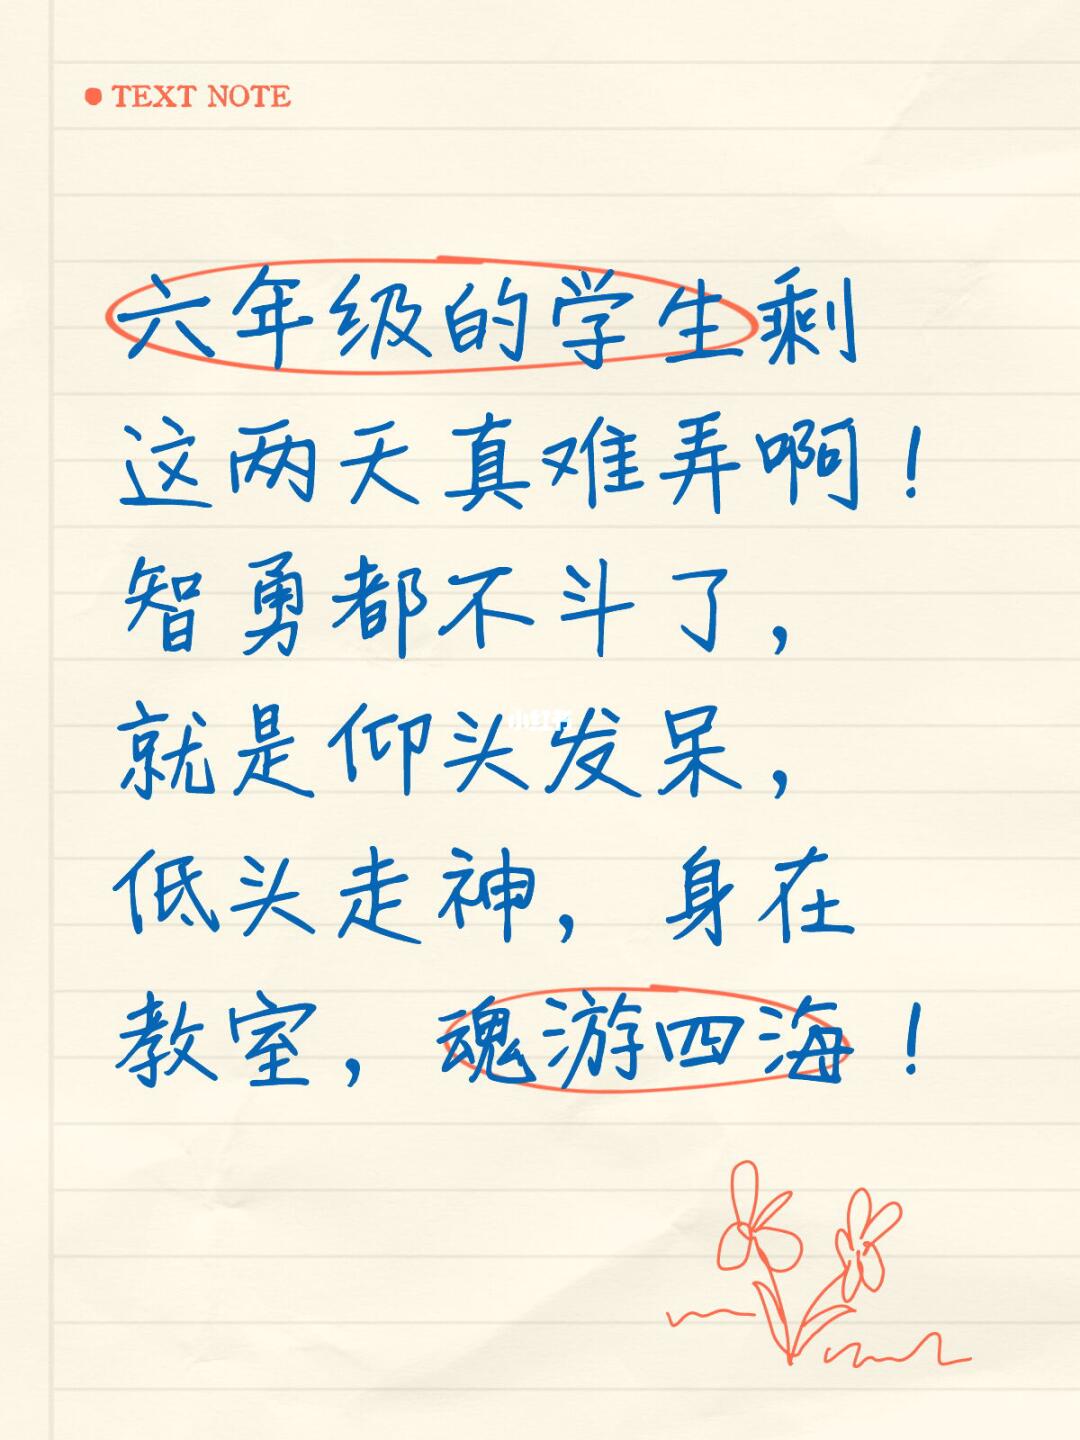 TEXT NOTE
六年级的学生剩
这两天真难弄啊！
智勇都不斗了，
就是仰头发呆，
小红书
低头走神，身在
教室，魂游四海！